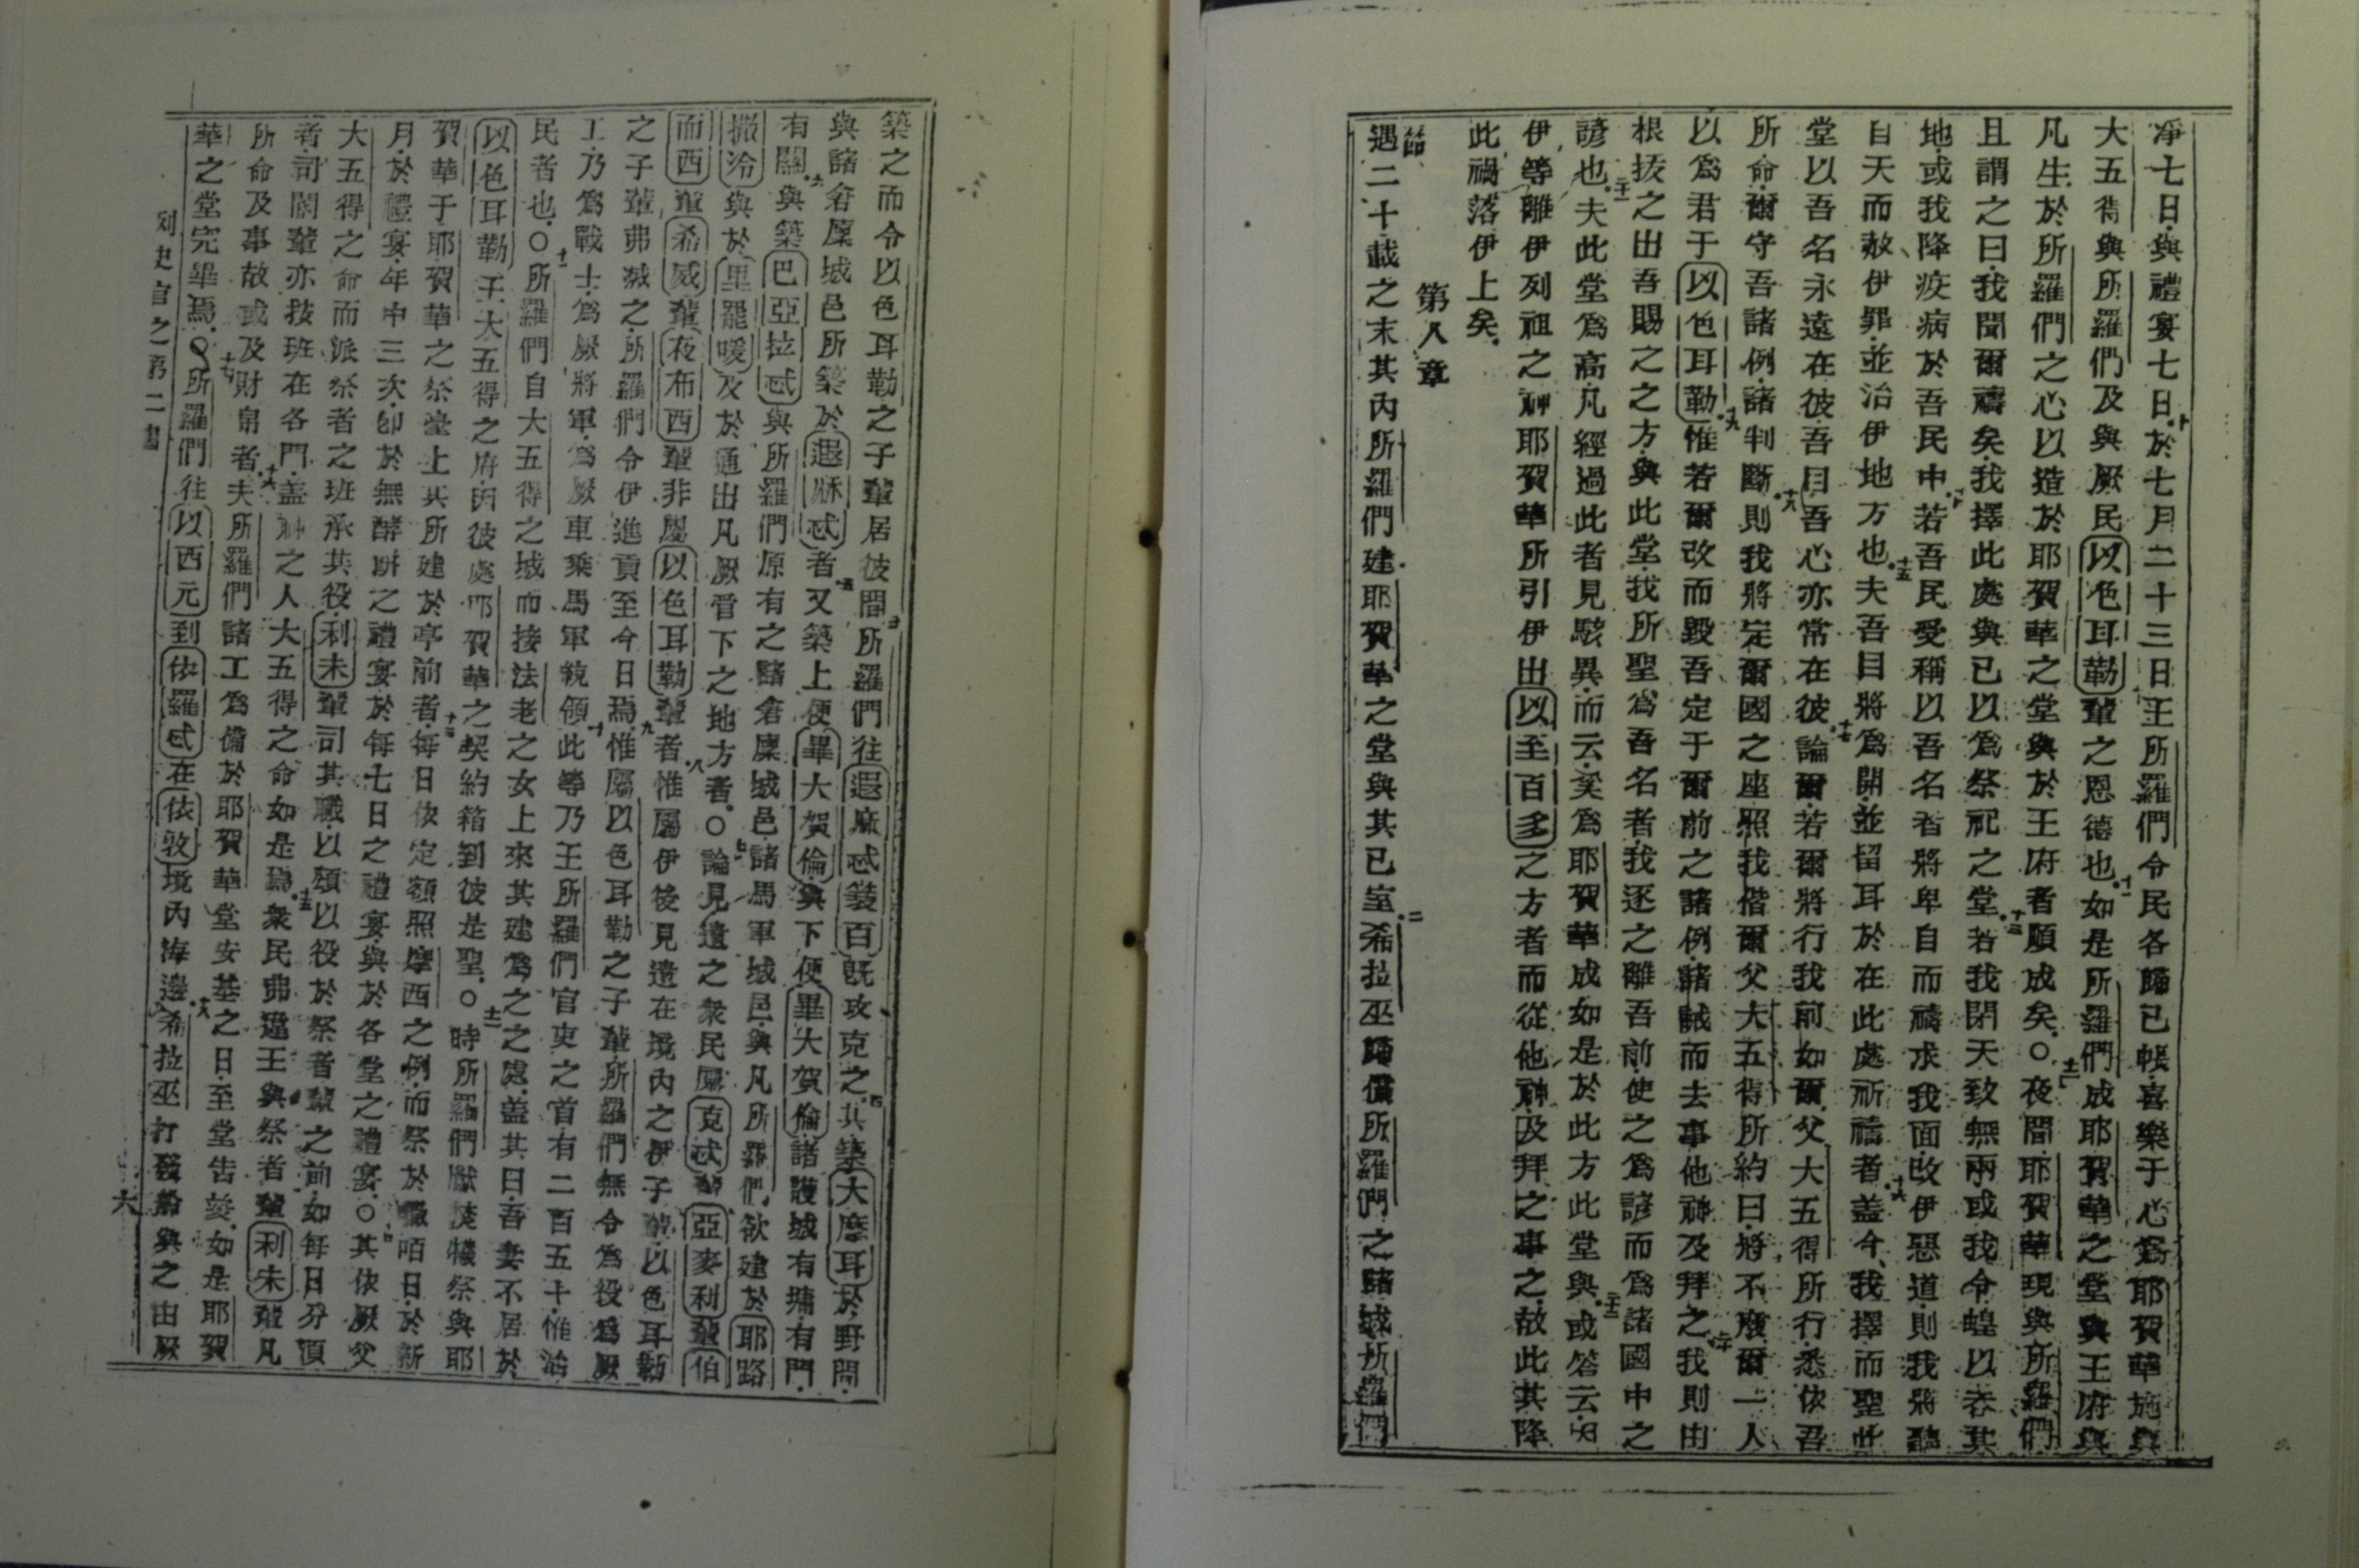 淨七日與禮宴七日十於七月二十三日王所羅們令民各歸已帳喜樂于心爲耶賀華施與
大五得與所羅們及與厥民以色耳勒輩之恩德也十一如是所羅們成耶賀華之堂與王府與
凡生於所羅們之心以造於耶賀華之堂與於王府者順成矣〇十二夜間耶賀華現與所羅們
且謂之曰我聞爾禱矣我擇此處與已以爲祭祀之堂十三若我閉天致無雨或我令蝗以吞其
地或我降疫病於吾民中十四若吾民受稱以吾名者將卑自而禱求我面改伊惡道則我將聽
自天而赦伊罪並治伊地方也十五夫吾目將爲開並留耳於在此處祈禱者十六蓋今我擇而聖此
堂以吾名永遠在彼吾目吾心亦常在彼十七論爾若爾將行我前如爾父大五得所行悉依吾
所命爾守吾諸例諸判斷十八則我將定爾國之座照我偕爾父大五得所約曰將不廢爾一人
以爲君于以色耳勒十九惟若爾改而毀吾定于爾前之諸例諸誡而去事他神及拜之二十我則由
根拔之出吾賜之之方與此堂我所聖爲吾名者我逐之離吾前使之爲諺而爲諸國中之
諺也二十一夫此堂爲高凡經過此者見駭異而云奚爲耶賀華成如是於此方此堂與二十二或答云因
伊等離伊列祖之神耶賀華所引伊出以至百多之方者而從他神及拜之事之故此其降
此禍落伊上矣
第八章
節遇二十載之末其內所羅們建耶賀華之堂與其已室二希拉巫歸償所羅們之諸城所羅們
築之而令以色耳勒之子輩居彼間三所羅們往遐麻忒鎖百旣攻克之四其築大麽耳於野間
與諸倉廩城邑所築於遐嘛忒者五又築上便畢大賀倫與下便畢大賀倫諸護城有墉有門
有關六與築巴亞拉忒與所羅們原有之諸倉廩城邑諸馬軍城邑與凡所羅們欲建於耶路
撒冷與於里罷暖及於通出凡厥管下之地方者〇七論見遺之衆民屬克忒輩亞麥利輩伯
而西輩希威輩夜布西輩非屬以色耳勒輩者八惟屬伊後見遺在境內之伊子輩以色耳勒
之子輩弗滅之所羅們令伊進貢至今日焉九惟屬以色耳勒之子輩所羅們無令爲役爲厥
工乃爲戰士爲厥將軍爲厥車乘馬軍統領十此等乃王所羅們官吏之首有二百五十惟治
民者也〇十一所羅們自大五得之城而接法老之女上來其建爲之之處蓋其曰吾妻不居於
以色耳勒王大五得之府因彼處耶賀華之契約箱到彼是聖〇十二時所羅們獻焚犧祭與耶
賀華于耶賀華之祭臺上其所建於亭前者十三每日依定額照摩西之例而祭於嘅咟日於新
月於禮宴年中三次卽於無酵餅之禮宴於每七日之禮宴與於各堂之禮宴〇十四其依厥父
大五得之命而派祭者之班承其役利未輩司其職以頌以役於祭者輩之前如每日分須
者司閽輩亦按班在各門蓋神之人大五得之命如是焉十五衆民弗違王與祭者輩利未輩凡
所命及事故或及財帛者十六夫所羅們諸工爲備於耶賀華堂安基之日至堂告竣如是耶賀
華之堂完畢焉〇十七所羅們往以西元到依羅忒在依敦境內海邊十八希拉巫打發船與之由厥
列史官之第二書
六